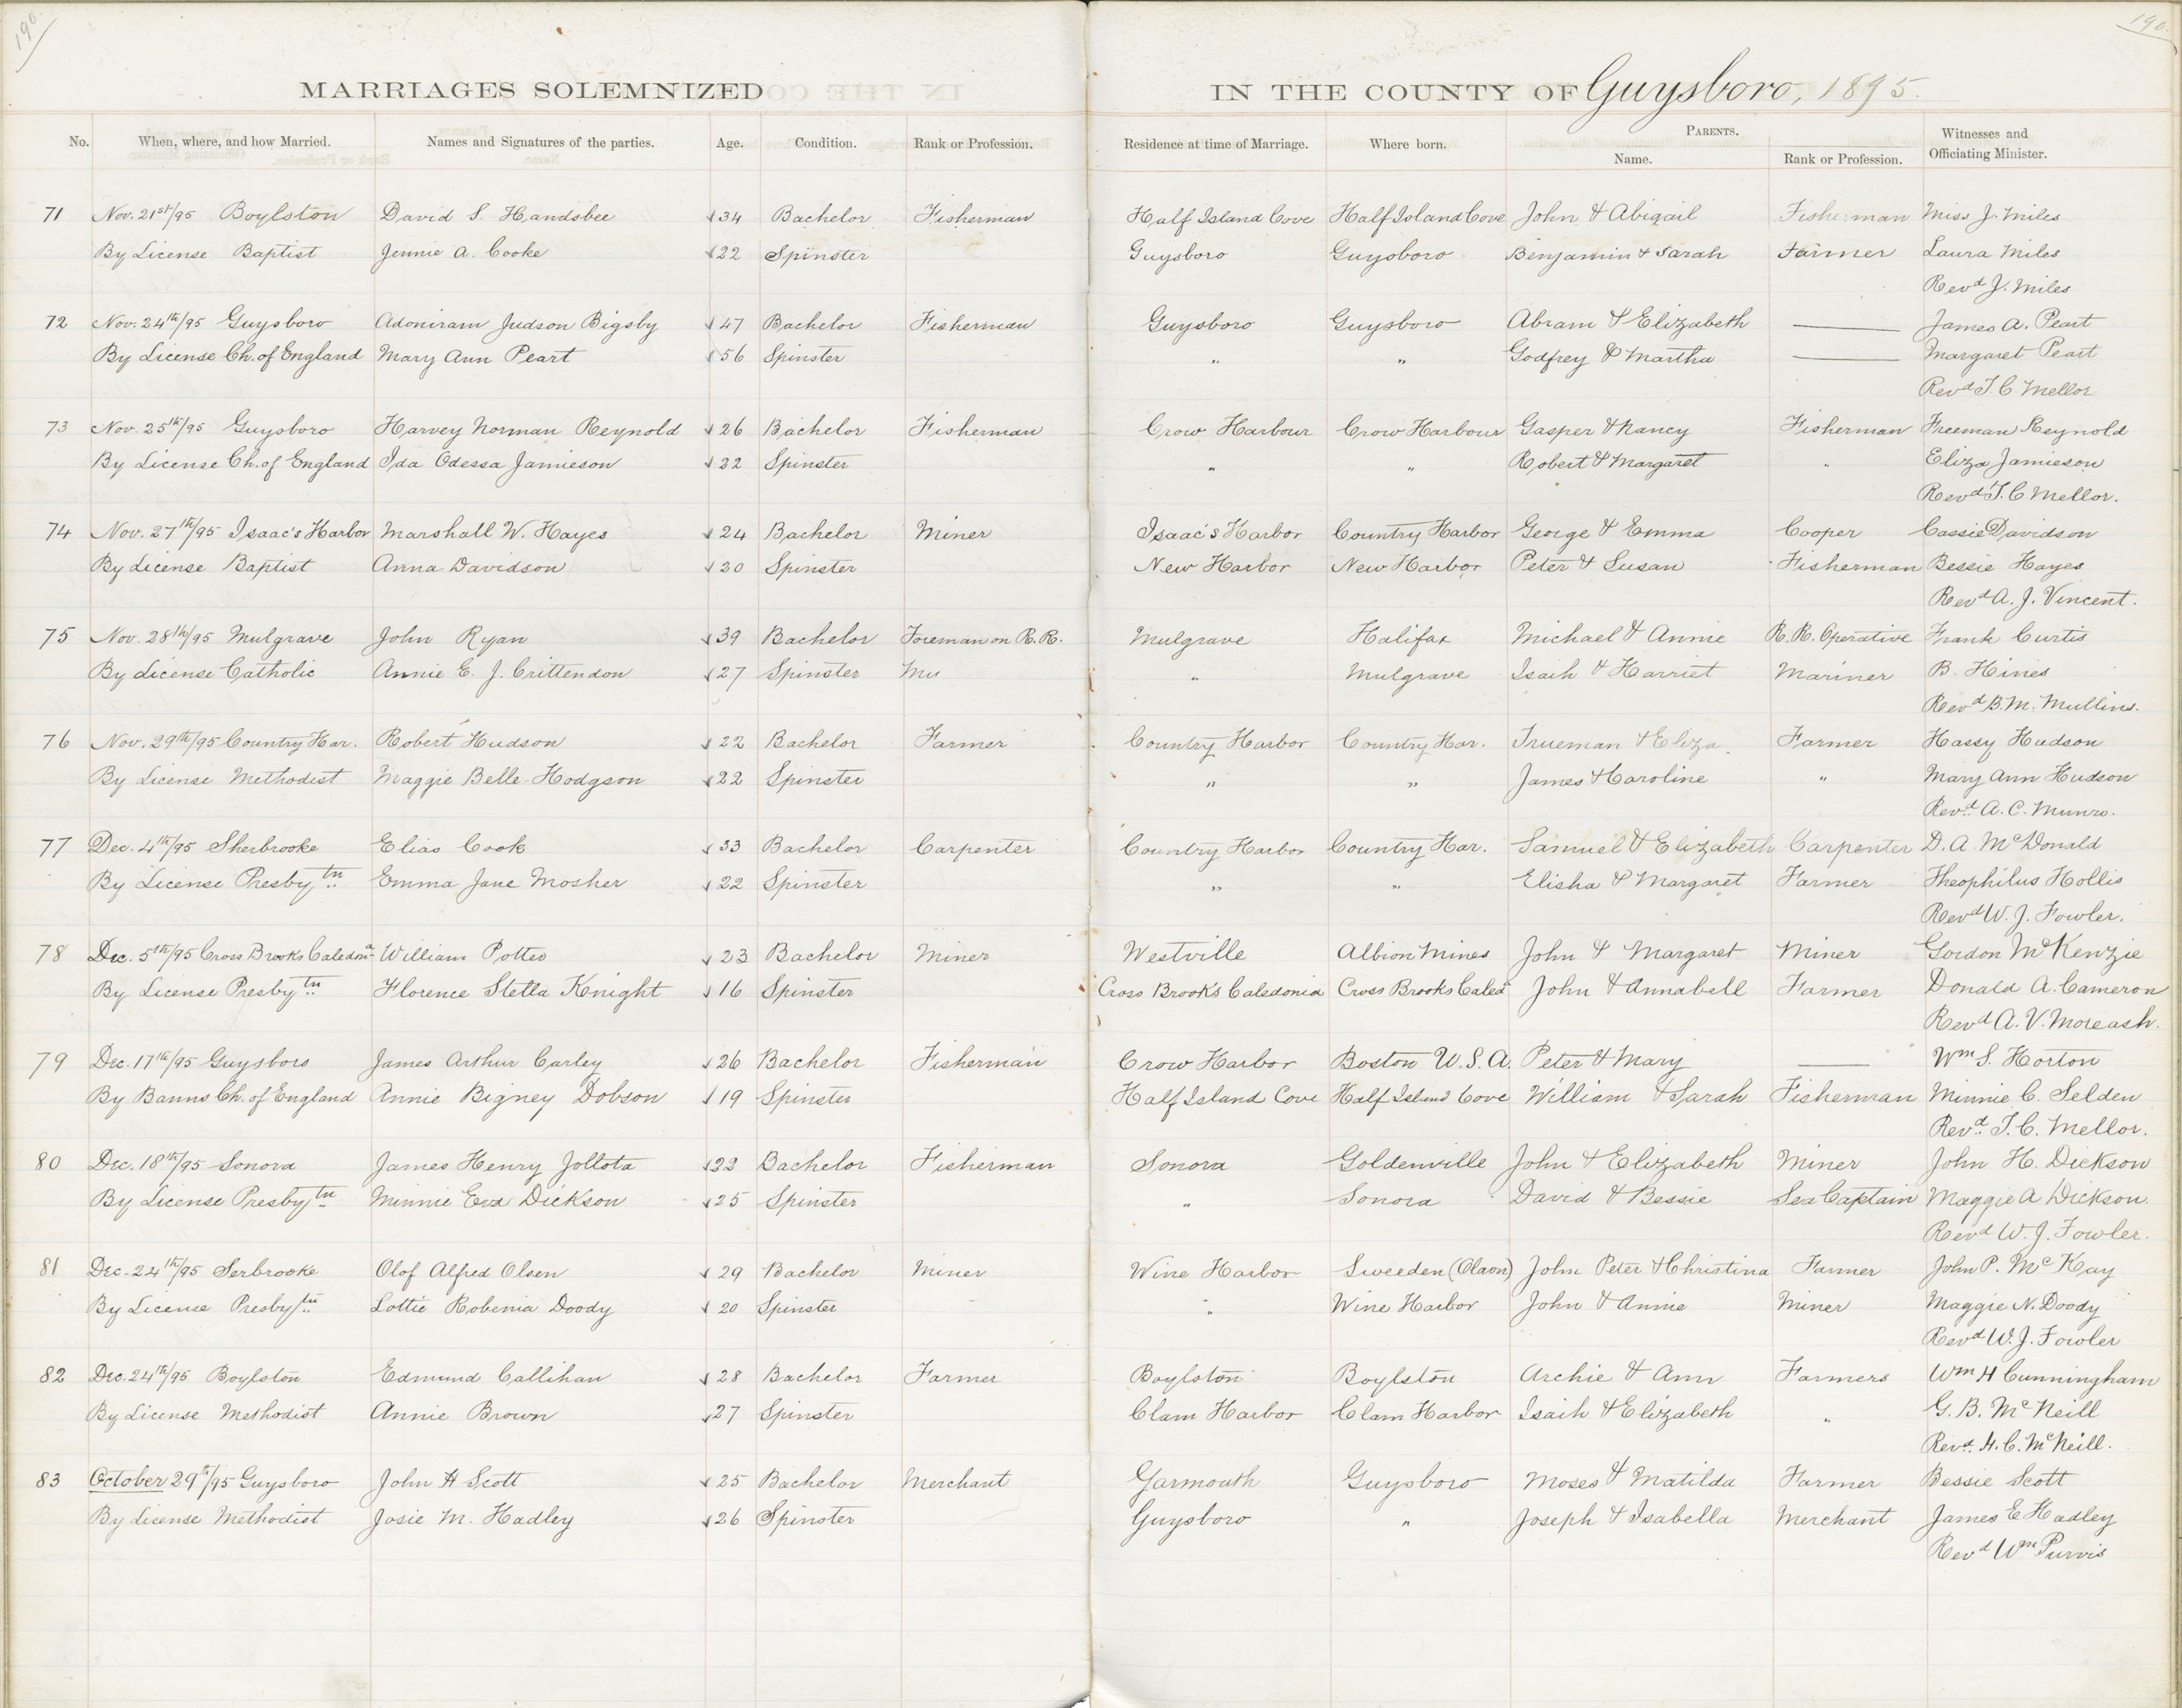 190.
190.
MARRIAGES SOLEMNIZED IN THE COUNTY OF Guysboro, 1895.
No. When, where, and how Married. Names and Signatures of the parties. Age. Condition. Rank or Profession. Residence at time of Marriage. Where born. PARENTS. Name. Rank or Profession. Witnesses and Officiating Minister.
71 Nov. 21st/95 Boylston David S. Handsbee 34 Bachelor Fisherman Half Island Cove Half Island Cove John & Abigail Fisherman Miss J. Miles
By License Baptist Jennie A. Cooke 22 Spinster Guysboro Guysboro Benjamin & Sarah Farmer Laura Miles
Revd J. Miles
72 Nov. 24th/95 Guysboro Adoniram Judson Bigsby 47 Bachelor Fisherman Guysboro Guysboro Abram & Elizabeth — James A. Peart
By License Ch. of England Mary Ann Peart 56 Spinster " " Godfrey & Martha — Margaret Peart
Revd T. C. Mellor
73 Nov. 25th/95 Guysboro Harvey Norman Reynold 26 Bachelor Fisherman Crow Harbour Crow Harbour Gasper & Nancy Fisherman Freeman Reynold
By License Ch. of England Ida Odessa Jamieson 22 Spinster " " Robert & Margaret " Eliza Jamieson
Revd T. C. Mellor.
74 Nov. 27th/95 Isaac's Harbor Marshall W. Hayes 24 Bachelor Miner Isaac's Harbor Country Harbor George & Emma Cooper Cassie Davidson
By License Baptist Anna Davidson 20 Spinster New Harbor New Harbor Peter & Susan Fisherman Bessie Hayes
Revd A. J. Vincent.
75 Nov. 28th/95 Mulgrave John Ryan 39 Bachelor Foreman on R. R. Mulgrave Halifax Michael & Annie R. R. Operative Frank Curtis
By License Catholic Annie E. J. Crittendon 27 Spinster Mu " Mulgrave Isaih & Harriet Mariner B. Hines
Revd B. M. Mullins.
76 Nov. 29th/95 Country Har. Robert Hudson 22 Bachelor Farmer Country Harbor Country Har. Trueman & Eliza Farmer Hassy Hudson
By License Methodist Maggie Belle Hodgson 22 Spinster " " James & Caroline " Mary Ann Hudson
Revd A. C. Munro.
77 Dec. 4th/95 Sherbrooke Elias Cook 33 Bachelor Carpenter Country Harbor Country Har. Samuel & Elizabeth Carpenter D. A. McDonald
By License Presbytn Emma Jane Mosher 22 Spinster " " Elisha & Margaret Farmer Theophilus Hollis
Revd W. J. Fowler.
78 Dec. 5th/95 Cross Brooks Caledona William Potter 23 Bachelor Miner Westville Albion Mines John & Margaret Miner Gordon McKenzie
By License Presbytn Florence Stella Knight 16 Spinster Cross Brook's Caledonia Cross Brooks Caleda John & Annabell Farmer Donald A. Cameron
Revd A. V. Moreash.
79 Dec. 17th/95 Guysboro James Arthur Carley 26 Bachelor Fisherman Crow Harbor Boston U.S.A. Peter & Mary — Wm S. Horton
By Banns Ch. of England Annie Bigney Dobson 19 Spinster Half Island Cove Half Island Cove William & Sarah Fisherman Minnie C. Selden
Revd T. C. Mellor.
80 Dec. 18th/95 Sonora James Henry Jollota 22 Bachelor Fisherman Sonora Goldenville John & Elizabeth Miner John H. Dickson
By License Presbytn Minnie Eva Dickson 25 Spinster " Sonora David & Bessie Sea Captain Maggie A Dickson.
Revd W. J. Fowler.
81 Dec. 24th/95 Serbrooke Olof Alfred Olsen 29 Bachelor Miner Wine Harbor Sweeden (Olaon) John Peter & Christina Farmer John P. McKay
By License Presbytn Lottie Robenia Doody 20 Spinster " Wine Harbor John & Annie Miner Maggie N. Doody
Revd W. J. Fowler
82 Dec. 24th/95 Boylston Edmund Callihan 28 Bachelor Farmer Boylston Boylston Archie & Ann Farmers Wm H Cunningham
By License Methodist Annie Brown 27 Spinster Clam Harbor Clam Harbor Isaih & Elizabeth " G. B. McNeill
Revd. H. C. McNeill.
83 October 29th/95 Guysboro John H Scott 25 Bachelor Merchant Yarmouth Guysboro Moses & Matilda Farmer Bessie Scott
By License Methodist Josie M. Hadley 26 Spinster Guysboro " Joseph & Isabella Merchant James E Hadley
Revd Wm Purvis